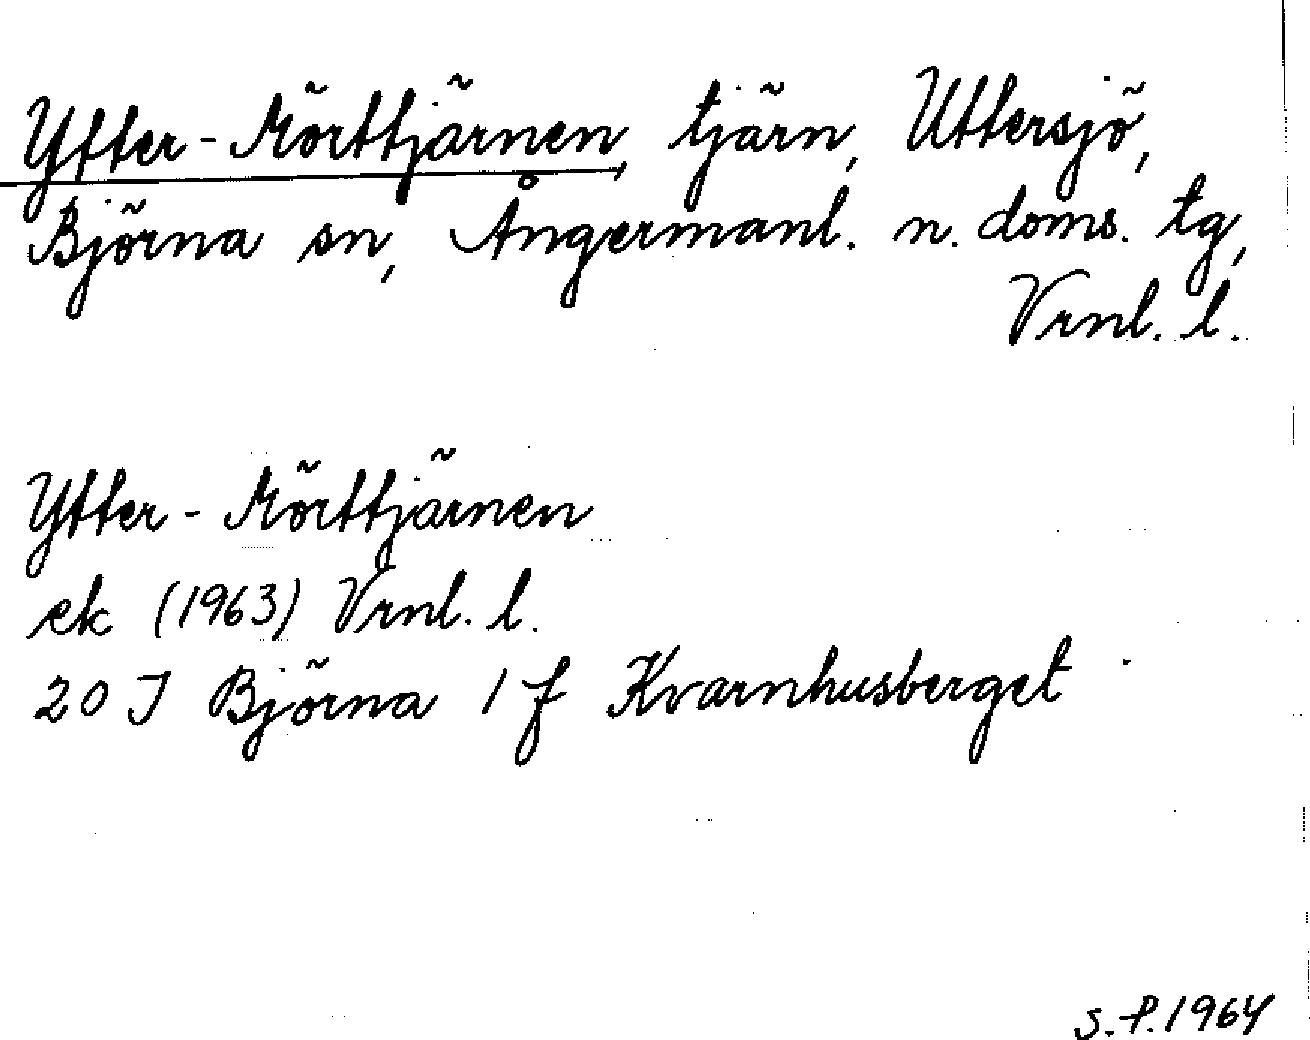 Ytter-Mörttjärnen, tjärn, Uttersjö,
Björna sn, Ångermanl. n. doms. tg,
Vrnl. l.
Ytter-Mörttjärnen
ek (1963) Vrnl. l.
20 J Björna 1 f Kvarnhusberget
S.P. 1964